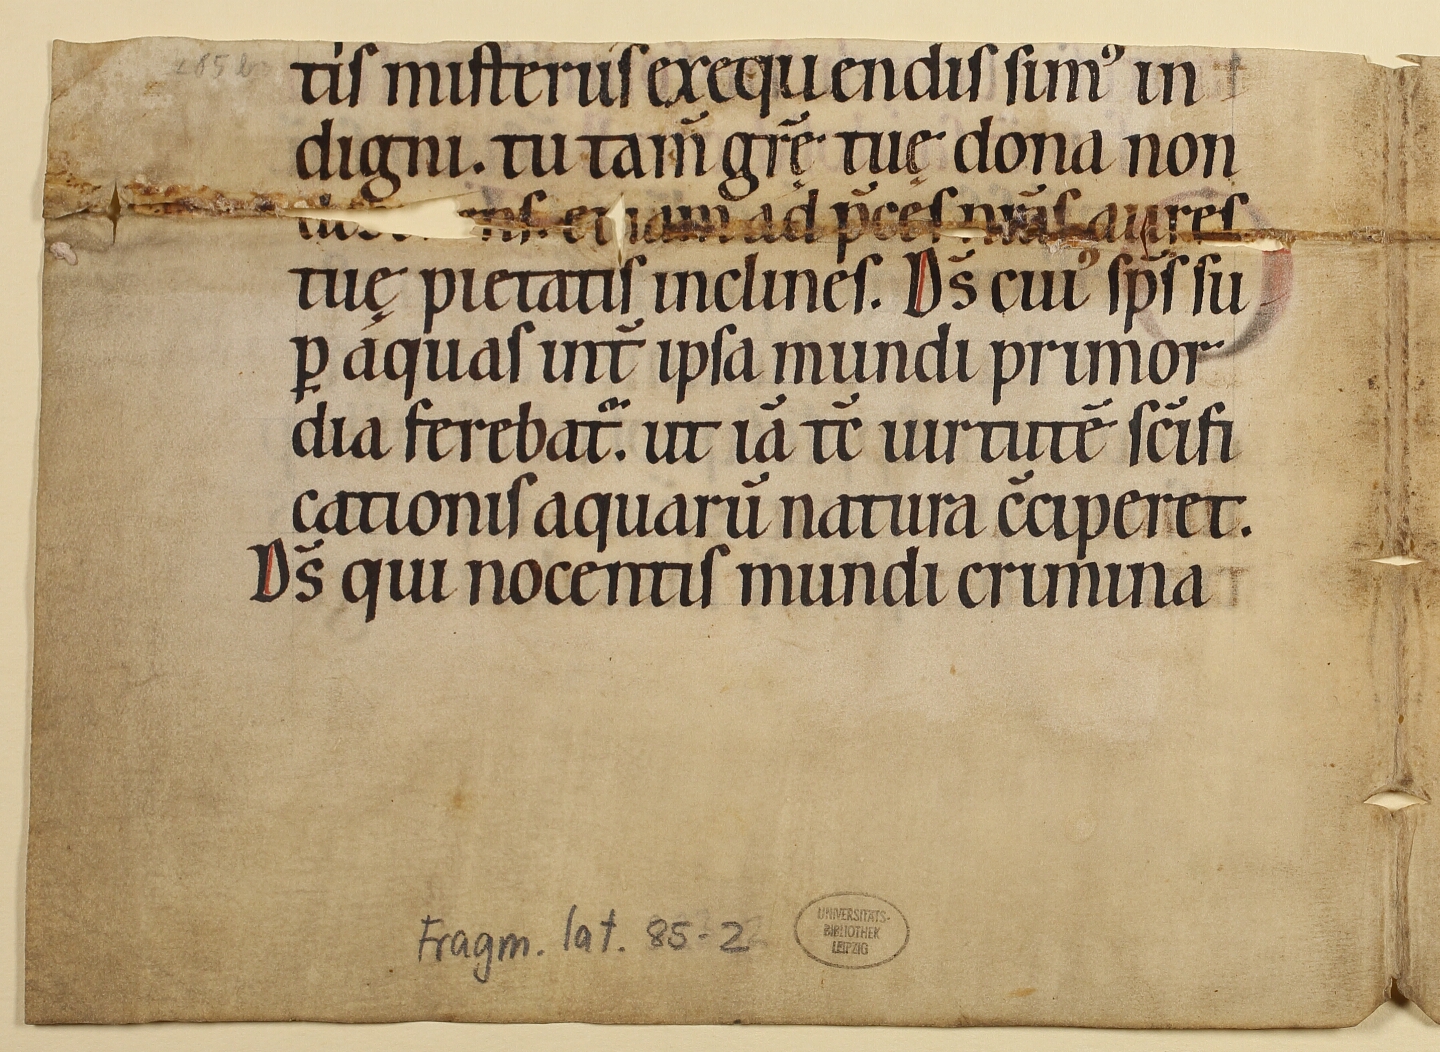 tis misteriis exequendis simꝰ in
digni. tu tam̄ gr̄ę tuę dona non
ens. etiam ad p̄ces nr̄as aures
tuę pietatis inclines. Ds̄ cuiꝰ sp̄s su
ꝑ aquas int̄ ipsa mundi primor
dia ferebat᷑. ut iā tc̄ uirtutē sc̄ifi
cationis aquarū natura c̄ciperet.
Ds̄ qui nocentis mundi crimina
Fragm. lat. 85-2
UNIVERSITÄTS-
BIBLIOTHEK
LEIPZIG